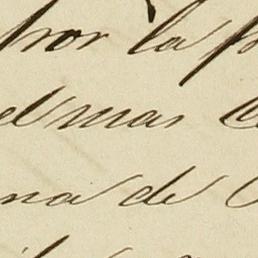 por la
el mas
na de